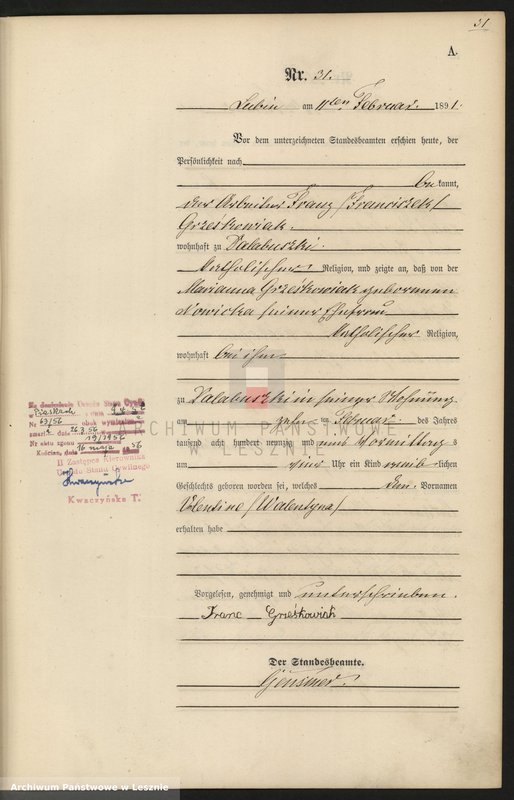 31
A.
Nr. 31.
Lubin am 11ten Februar 1891.
Vor dem unterzeichneten Standesbeamten erschien heute, der
Persönlichkeit nach
bekannt,
der Arbeiter Franz /Franciszek/
Grześkowiak
wohnhaft zu Talabuszki
katholischer Religion, und zeigte an, daß von der
Marianna Grześkowiak geborenen
Nowicka seiner Ehefrau
katholischer Religion,
wohnhaft bei ihm
zu Talabuszki in seiner Wohnung
am zehn ten Februar des Jahres
tausend acht hundert neunzig und eins Vormittag s
um Uhr ein Kind weib lichen
Geschlechts geboren worden sei, welches den Vornamen
Valentine /Walentyna/
erhalten habe
Vorgelesen, genehmigt und unterschrieben.
Franc Grieskowiak
Der Standesbeamte.
Na doniesienie Urzędu Stanu Cywil.
w Piaskach z dnia
Nr 63/56
zmarł 26.3.56
Nr aktu zgonu 19/1956
Kościan, dnia 16 maja 56
II Zastępca Kierownika
Urzędu Stanu Cywilnego
Kwaczyńska
Kwaczyńska T.
ARCHIWUM PAŃSTWOWE
W LESZNIE
Archiwum Państwowe w Lesznie